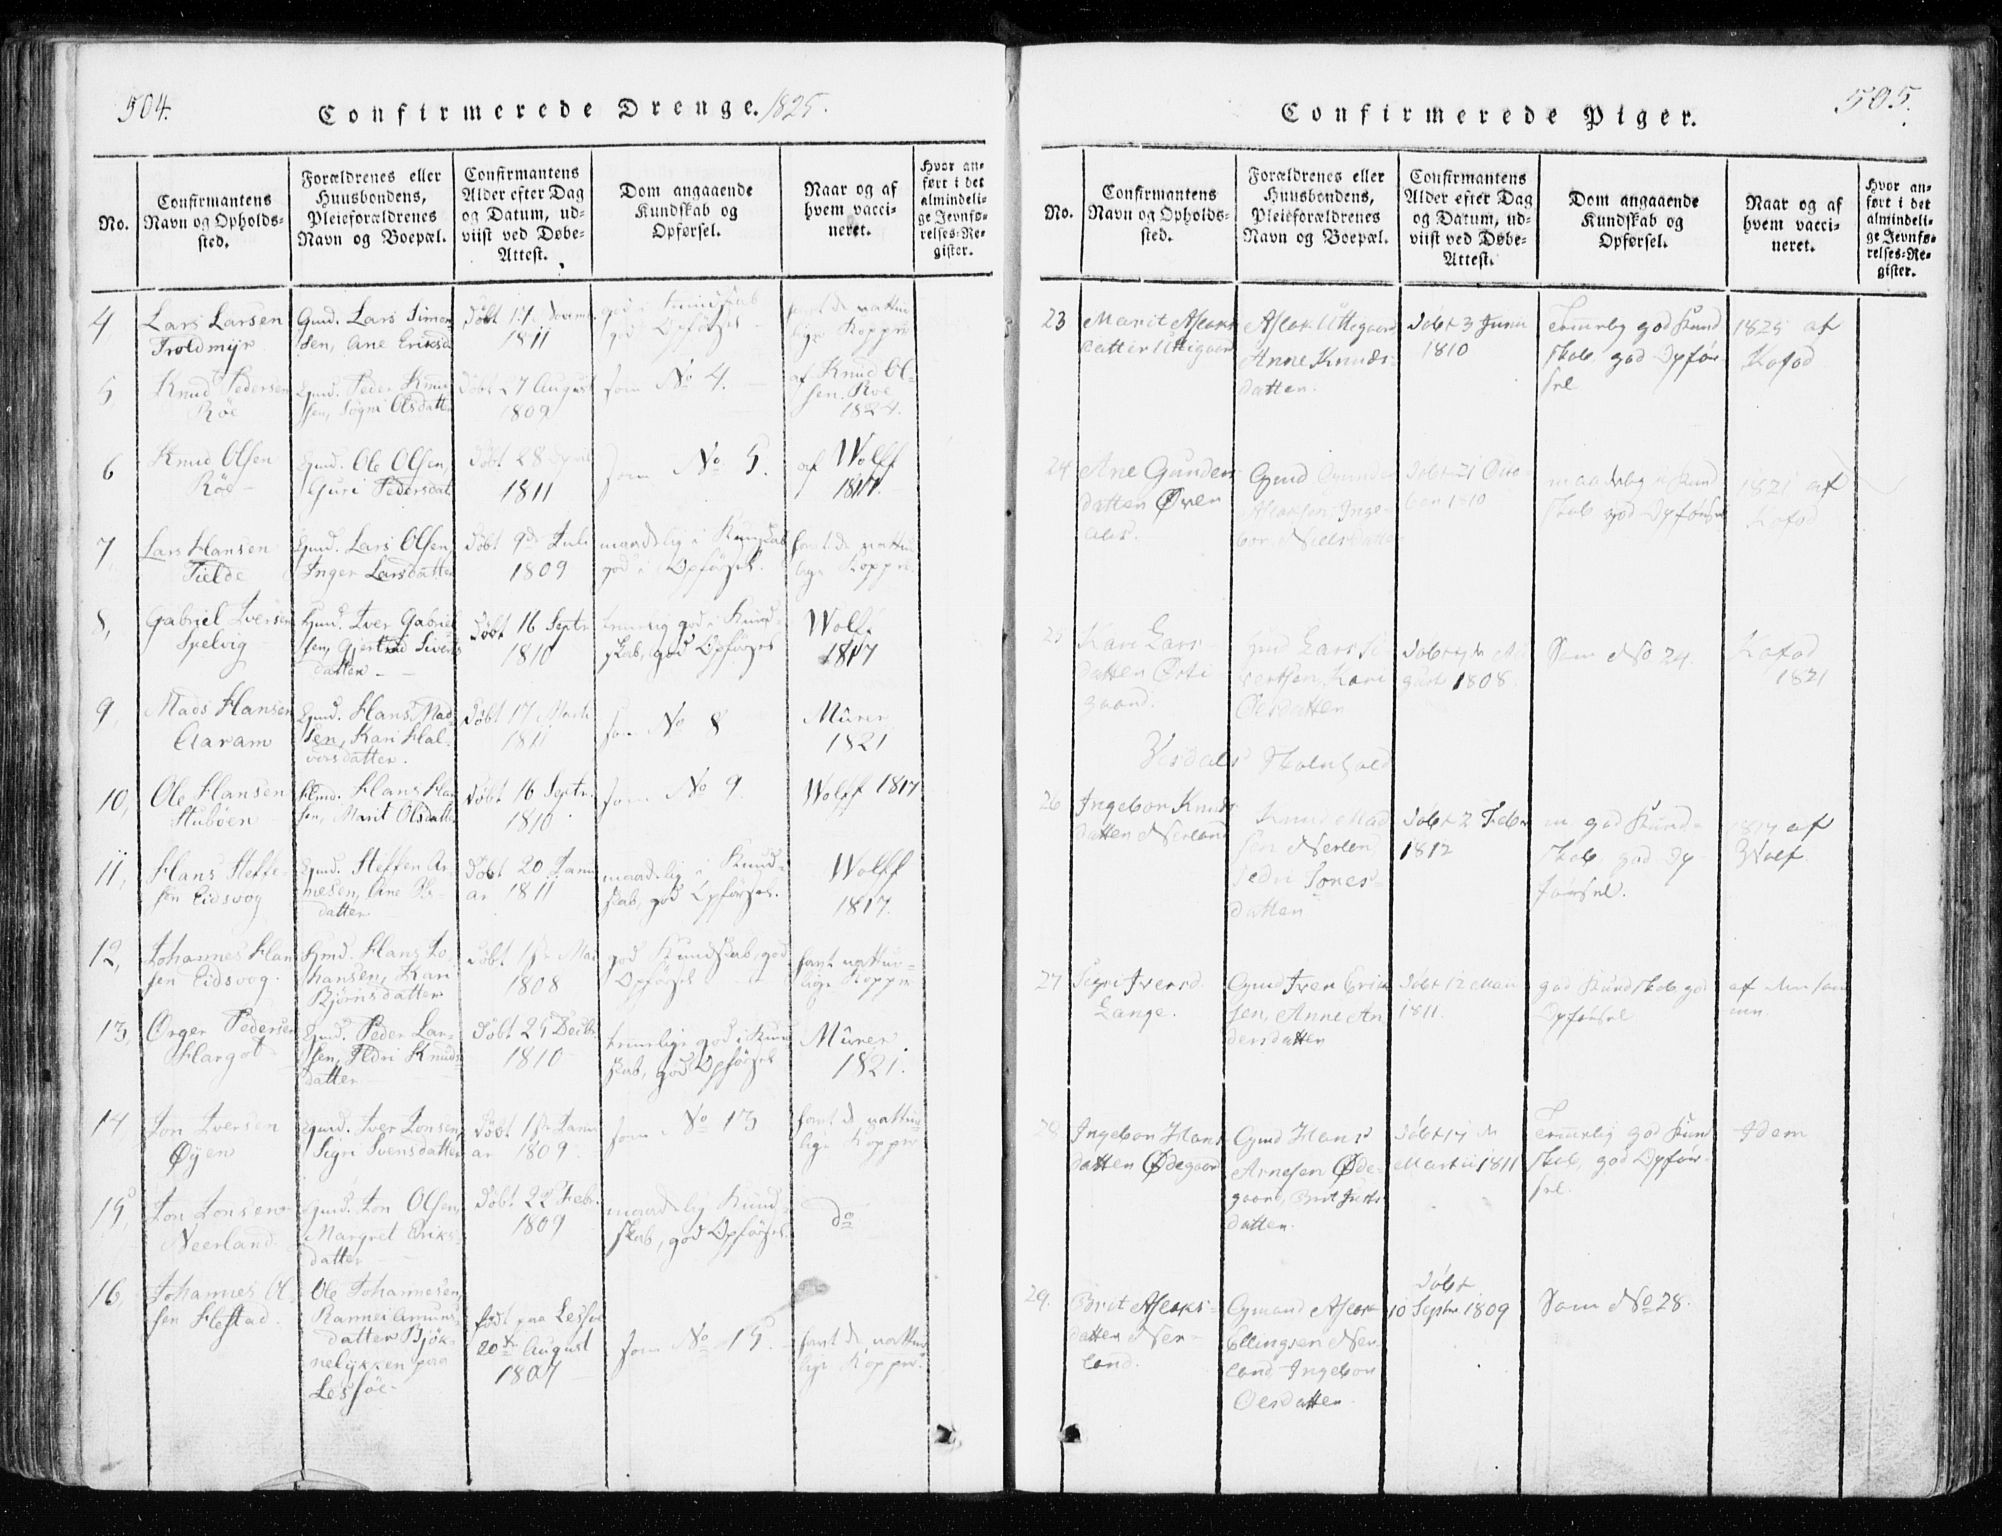 504.
Confirmerede Drenge. 1825.
No.
Confirmantens Navn og Opholds-sted.
Forældrenes eller Huusbondens, Pleieforældrenes Navn og Boepæl.
Confirmantens Alder efter Dag og Datum, ud-viist ved Døbe-Attest.
Dom angaaende Kundskab og Opførsel.
Naar og af hvem vacci-neret.
Hvor an-ført i det almindeli-ge Jevnfø-relses-Re-gister.
4
Lars Larsen
Troldmÿr
Gmd. Lars Simon-
sen, Ane Eriksd
Døbt 17. Novemb.
1811
god i Kundskab
god Opførsel
havt de nattur
lige Kopper
5
Knud Pedersen
Röe
Gmd. Peder Knud
sen, Sögni Olsdatter
Døbt 27 August
1809
som No 4.
af Knud Ol-
sen Röe
1824.
6
Knud Olsen
Röe
Gmd. Ole Olsen,
Guri Pedersdat
Døbt 28 April
1811
som No 5.
af Wolff
1817.
7,
Lars Hansen
Tielde
Gmd. Lars Olsen,
Inger Larsdatter
Døbt 9de Juli
1809
maadelig i Kundskab
god i Opförsel.
havt de nattur
lige Kopper
8,
Gabriel Iversen
Spelvig
Gmd. Iver Gabriel
sen, Gjertrud Sivers
datter
Døbt 16 Septr
1810
temmelig god i Kund-
skab, god Opförsel
Wolff
1817
9,
Mads Hansen
Aaram
Gmd. Hans Mad-
sen, Kari Hal-
vorsdatter.
Døbt 17 Marti
1811
som No 8
Mûrer
1821
10,
Ole Hansen
Stuböen
Hmd. Hans Han
sen, Marit Olsdatter
Døbt 16 Septr.
1810
som No 9
Wolff 1817
11,
Hans Steffe-
sen Eidsvog
Gmd. Steffen Ar-
nesen, Ane
datter
Døbt 20 Janu
ar 1811
maadelig i Kund-
skab, god Opförsel.
Wolff
1817.
12,
Johannes Han
sen Eidsvog.
Hmd. Hans Jo-
hansen, Kari
Björnsdatter
Døbt 1ste Mai
1808
god Kundskab, god
Opförsel
havt nattur-
lige Kopper
13,
Örger Pedersen
Hargot
Gmd. Peder Lar-
sen, Sedri Knuds
datter
Døbt 25 Decbr
1810
temmelige god i Kund
skab, god Opförsel
Mûrer
1821.
14
Jon Iversen
Öÿen
Gmd. Iver Jonsen,
Sigri Svensdatter
Døbt 1ste Janu
ar 1809.
som No 13
havt de nattur
lige Kopper
15,
Jon Jonsen
Neerland
Gmd. Jon Olsen,
Margret Eriks-
datter
Døbt 22 Febr
1809
maadelig Kund-
skab, god Opförsel.
do
16,
Johannes Ol-
sen Hestad.
Ole Johannesen,
Rannei Amuns
datter Bjök-
nelÿkken paa
Lessöe
födt paa Lessöe
20de August
1807
som No 15.
havt de nattur
lige Kopper.
505.
Confirmerede Piger.
No.
Confirmantens Navn og Opholds-sted.
Forældrenes eller Huusbondens, Pleieforældrenes Navn og Boepæl.
Confirmantens Alder efter Dag og Datum, ud-viist ved Døbe-Attest.
Dom angaaende Kundskab og Opførsel.
Naar og af hvem vacci-neret.
Hvor an-ført i det almindeli-ge Jevnfø-relses-Re-gister.
23
Marit Aslaks
datter Uttigaard
Aslak Uttegaard
Anne Knuds-
datter.
Døbt 3 Junii
1810
Temmelig god Kund
skab, god Opfør-
sel
1825 af
Kofod
24
Ane Gunder
datter Över
aas.
Gmd
Aslaksen, Inge-
bor Nielsdatter
Døbt 21 Octo
ber 1810
maadelig Kund
skab god Opførsel
1821 af
Kofod
25
Kari Lars
datter Østi
gaard.
Gmd Lars Si
vertsen, Kari
Olesdatter
Døbt Au
gust 1808.
Som No 24.
Kofod
1821
26
Ingebor Knuds
datter Nerland
Knud Mad
sen Nerland,
Sedri Jones-
datter
Døbt 2 Febr
1812
god Kund-
skab, god Op-
førsel.
1817 af
Wolf.
27
Sigri Iversd.
Lange.
Gmd Iver Erik
sen, Anne An
dersdatter
Døbt 12 Mai
1811.
god Kundskab, god
Opførsel
af den sam
me
28
Ingebor Hans
datter Ødegaard
Gmd Hans
Arnesen Øde-
gaard, Brit
datter.
Døbt 17 de
Martii 1811
Temmelig god Kund
skab, god Opfør-
sel.
Idem
29.
Brit Aslaks-
datter Ner-
land.
Gmand Aslak
Ellingsen Ner
land Ingebor
Olesdatter
Døbt
10 Septbr 1809
Som No 28.